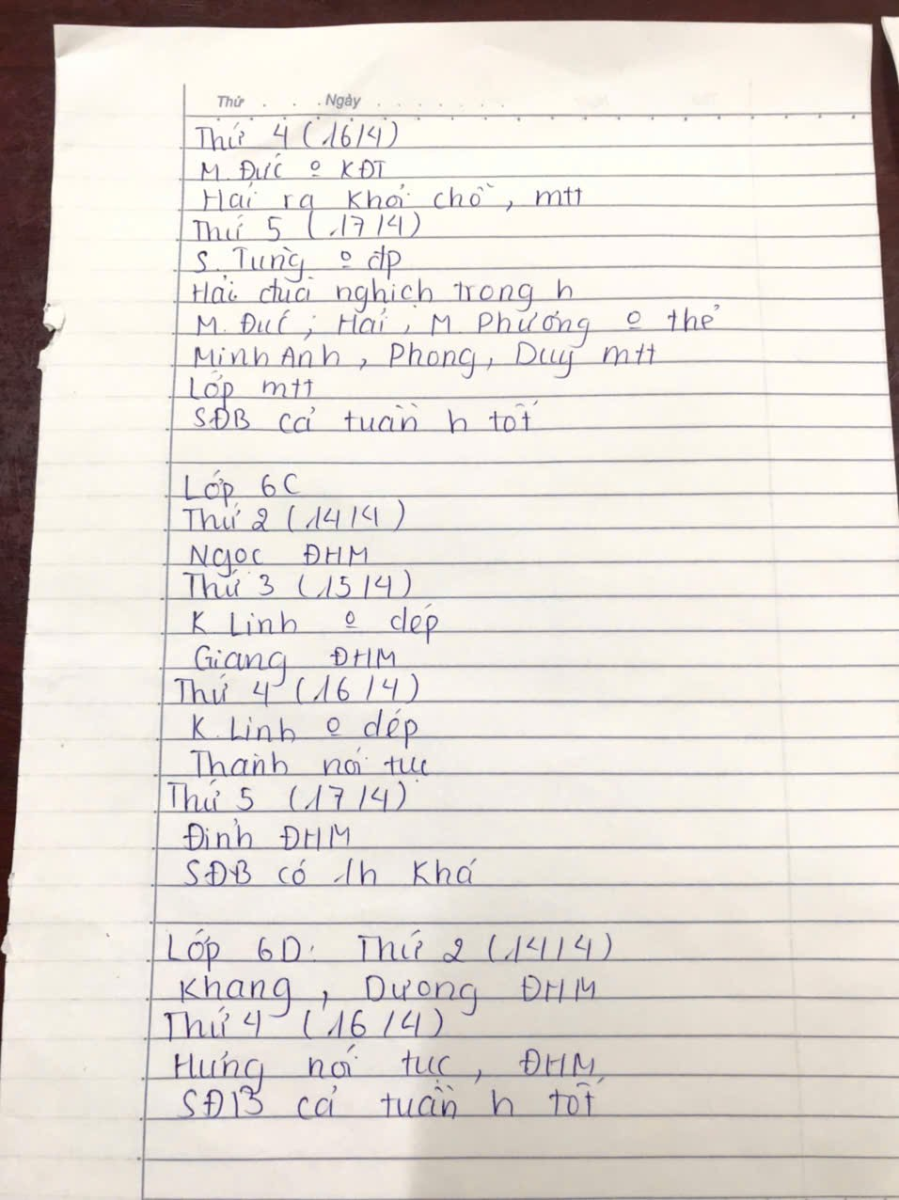 Thứ . . . Ngày . . . . . . .
Thứ 4 (16/4)
M. Đức o KĐT
Hải ra khỏi chỗ, mtt
Thứ 5 (17/4)
S. Tùng o đp
Hải đuổi nghịch trong h
M. Đức, Hải, M Phương o thẻ
Minh Anh, Phong, Duy mtt
Lớp mtt
SĐB cả tuần h tốt
Lớp 6C
Thứ 2 (14/4)
Ngọc ĐHM
Thứ 3 (15/4)
K Linh o dép
Giang ĐHM
Thứ 4 (16/4)
K. Linh o dép
Thành nói tục
Thứ 5 (17/4)
Định ĐHM
SĐB có 1h Khá
Lớp 6D: Thứ 2 (14/4)
Khang, Dương ĐHM
Thứ 4 (16/4)
Hưng nói tục, ĐHM
SĐB cả tuần h tốt